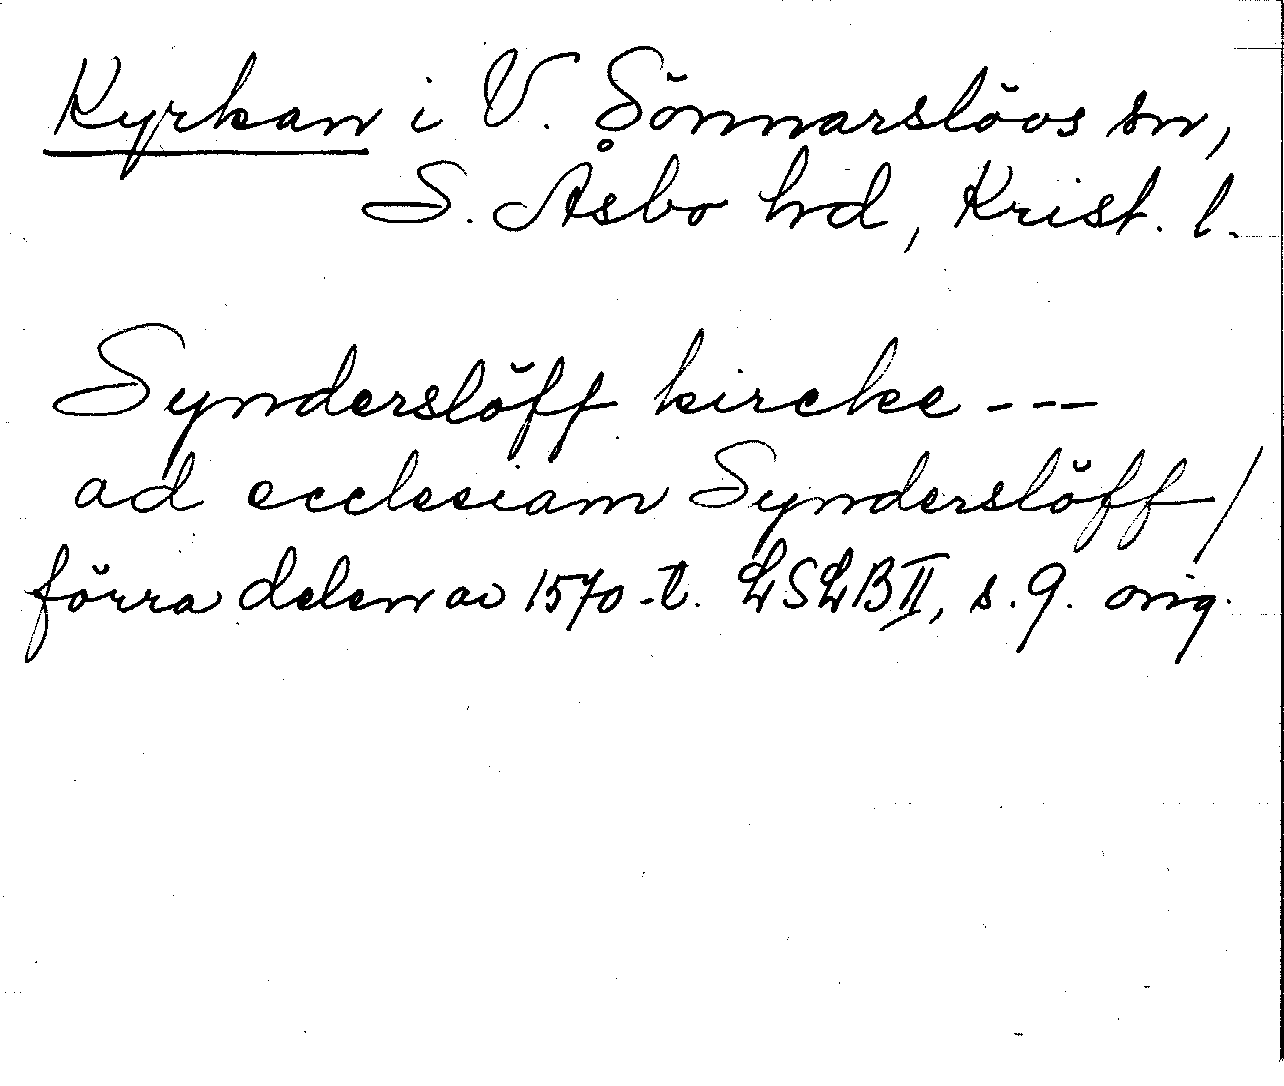 Kyrkan i V. Sönnarslövs sn,
S. Åsbo hd, Krist. l.
Synderslöff kircke ---
ad ecclesiam Synderslöff/
förra delen av 1570-t. LSLB II, s. 9. orig.